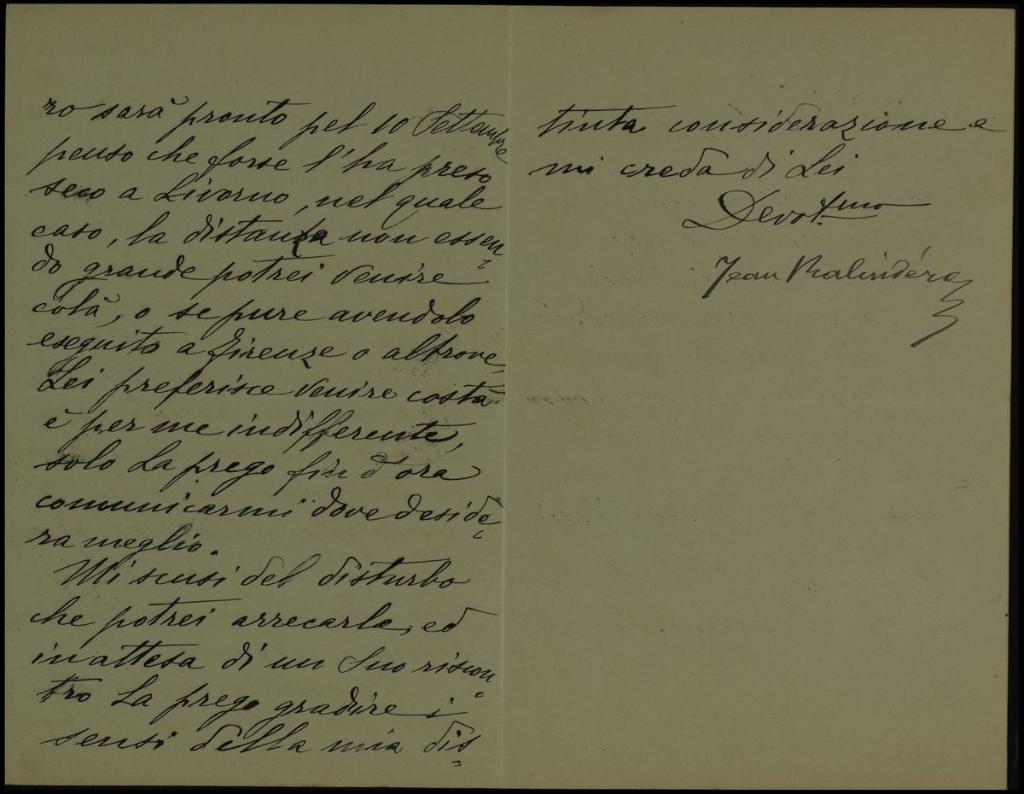 ro sarà pronto pel 10 Settembre
penso che forse l'ha preso
seco a Livorno, nel quale
caso, la distanza non essen=
do grande potrei venire
colà, o se pure avendolo
eseguito a Firenze o altrove,
Lei preferisce venire costà
è per me indifferente,
solo La prego fin d'ora
comunicarmi dove deside=
ra meglio.
Mi scusi del disturbo
che potrei arrecarla, ed
in attesa di un Suo riscon=
tro La prego gradire i
sensi della mia dis=
tinta considerazione e
mi creda di Lei
Devot.mo
Jean Kalindéro